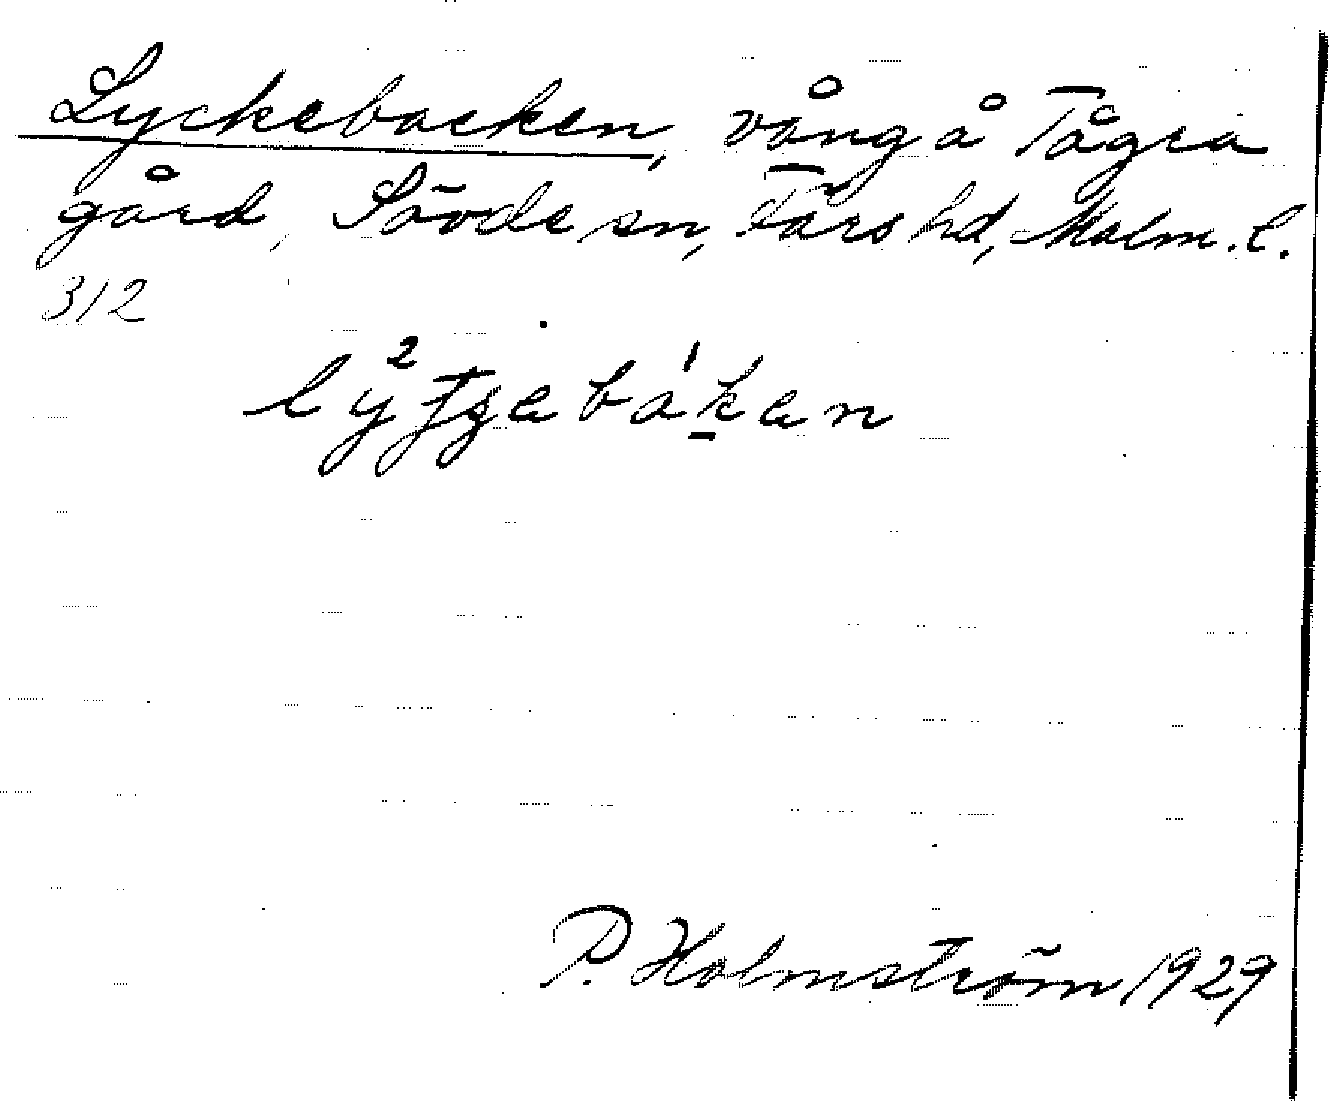 Lyckebacken, vång å Tågra
gård, Sövde sn, Färs hd, Malm. l.
312
P. Holmström 1929